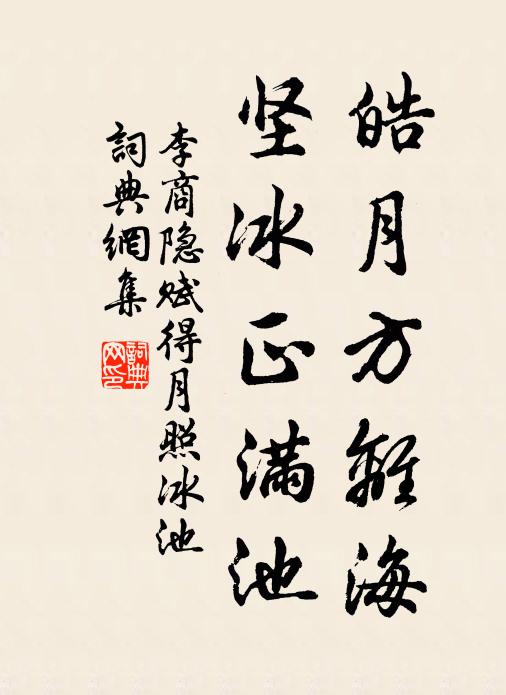 皓月方離海
坚冰正满池
李商隐赋得月照冰池
詞典網集
詞典
网印